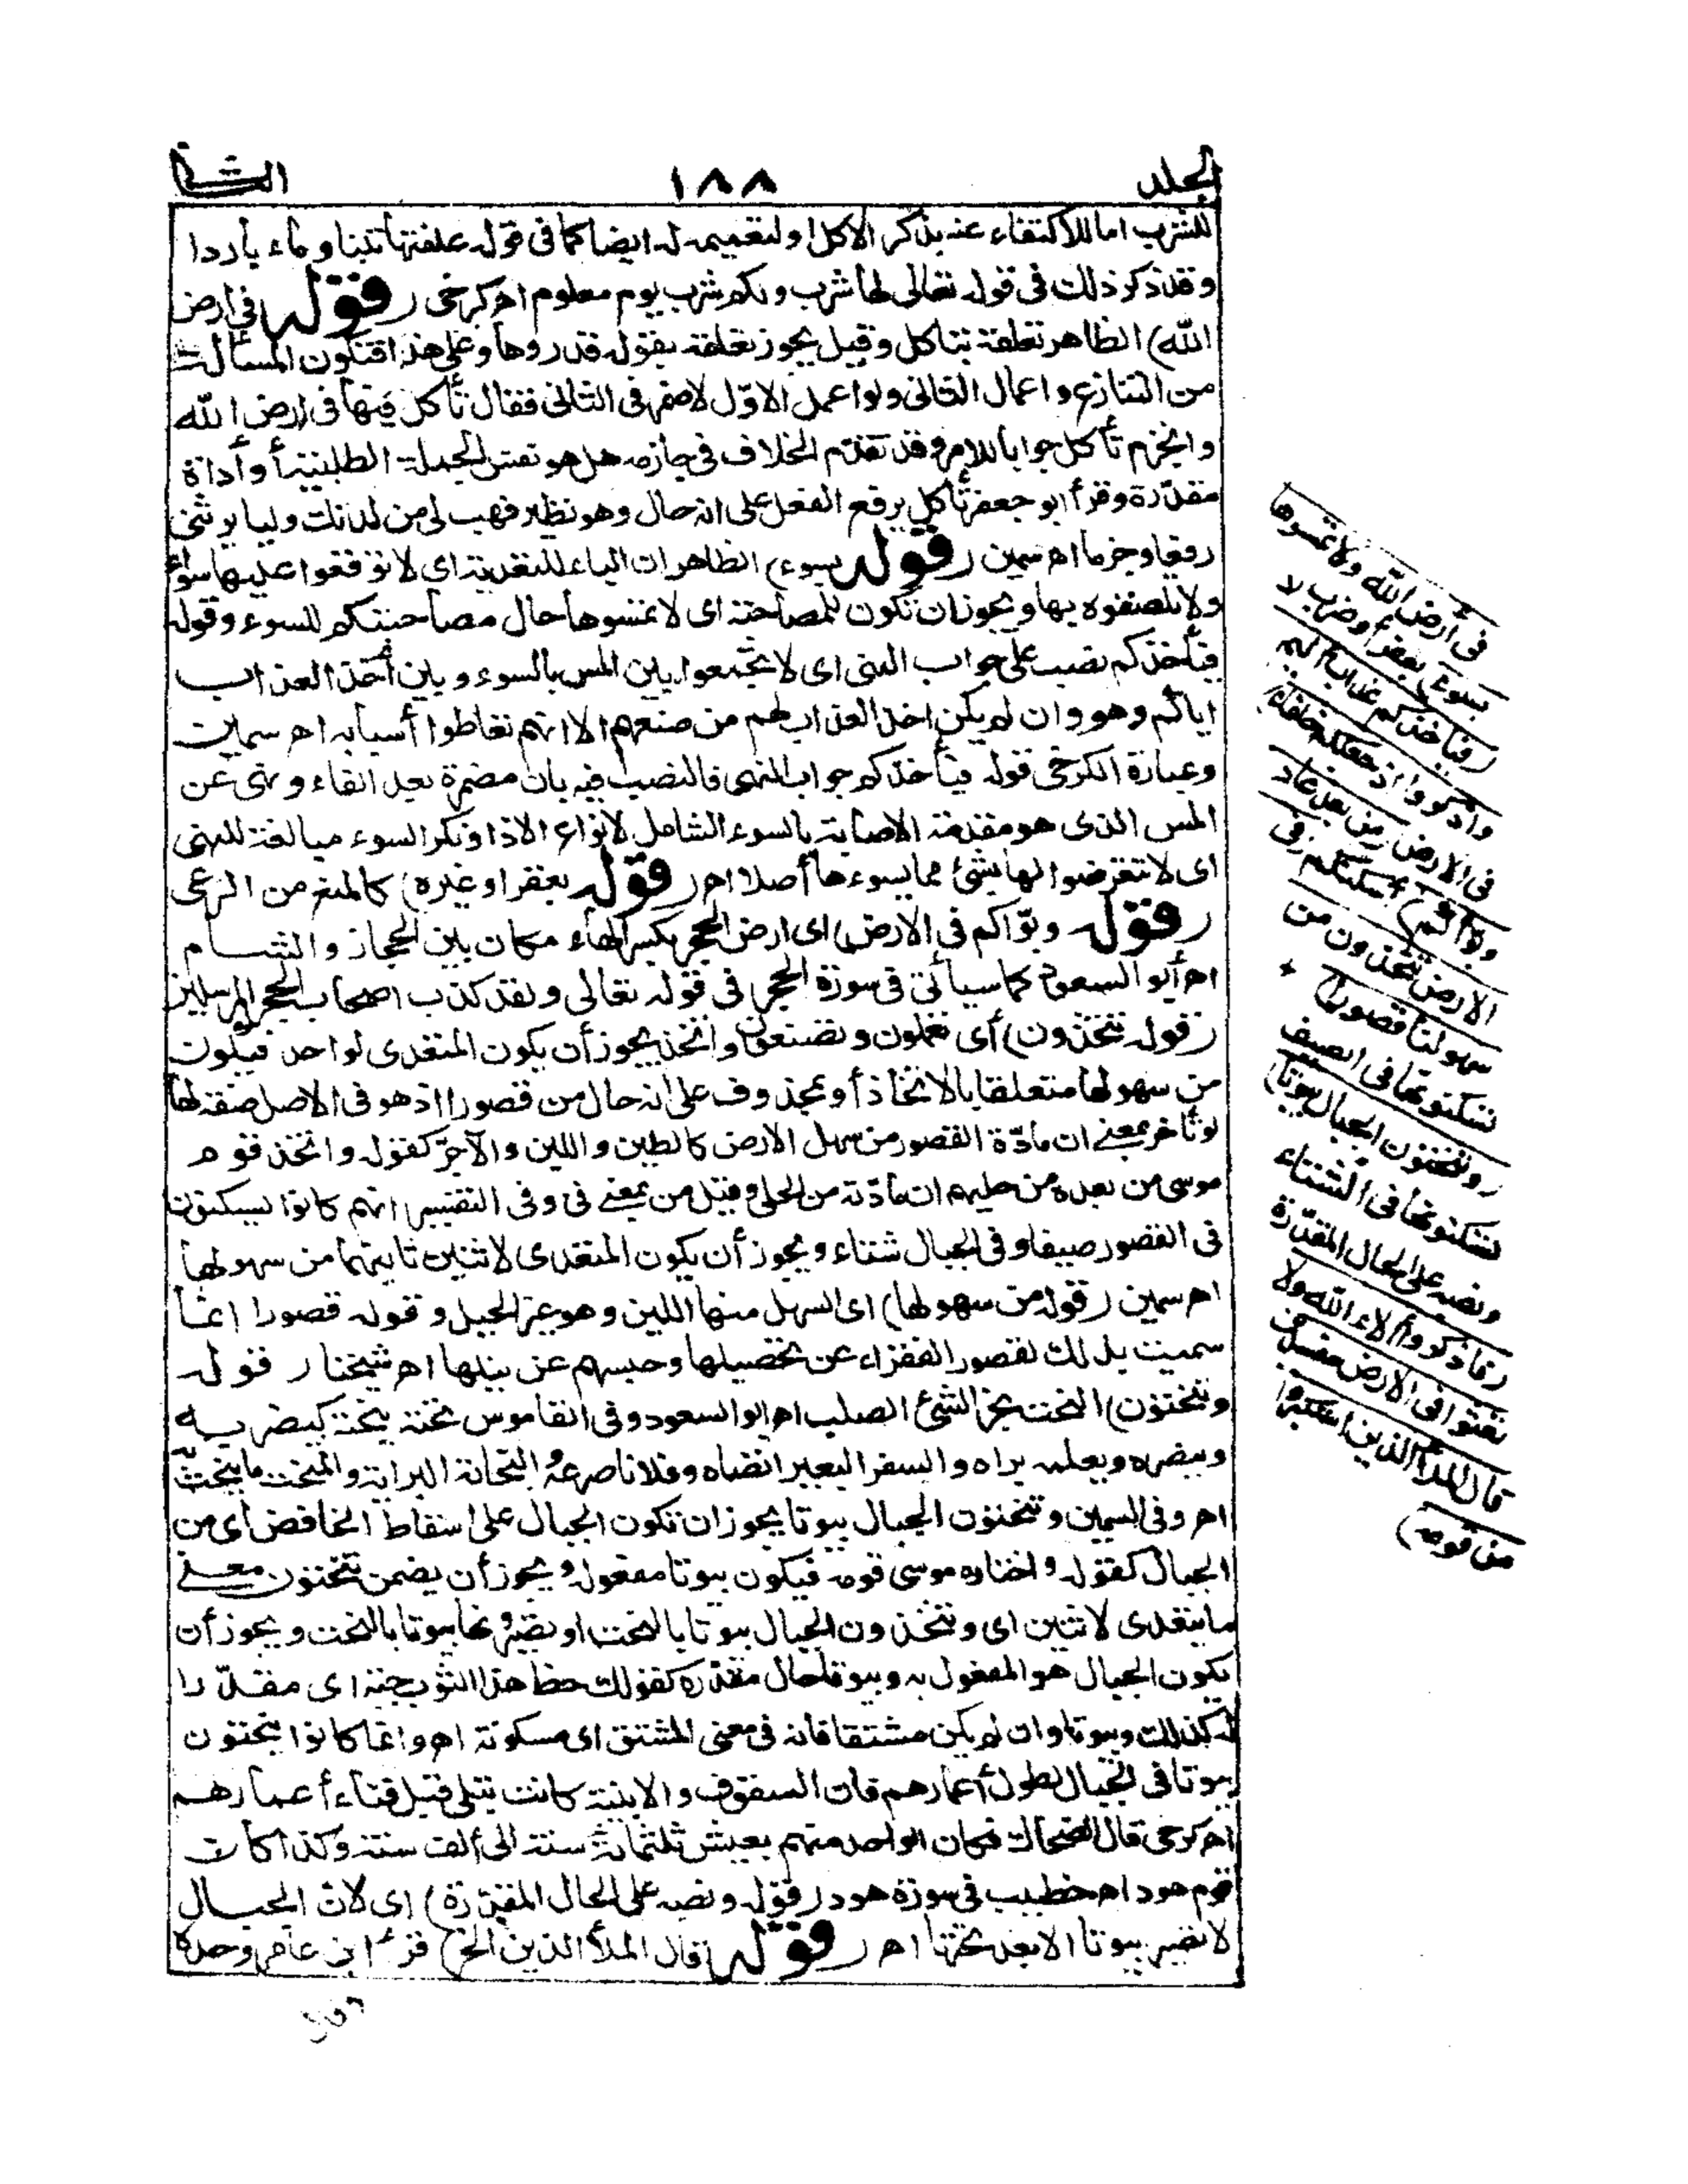 الجلد
١٨٨
الثا
للشرب اما للاكتفاء عنه بذكر الاكل او لتعميمه له ايضا كما فى قوله علفتها تبنا وماء باردا
وقد ذكر ذلك فى قوله تعالى لها شرب ولكم شرب يوم معلوم اه كرخى (قوله فى ارض
الله) الظاهر تعلقه بتاكل وقيل يجوز تعلقه بقوله فذروها وعلى هذا فتكون المسألة
من التنازع واعمال الثانى ولو اعمل الاوّل لاضمر فى الثانى فقال تأكل فيها فى ارض الله
وانجزم تأكل جوابا للامر وقد تقدّم الخلاف فى جازمه هل هو نفس الجملة الطلبية أو أداة
مقدّرة وقرأ ابو جعفر تأكل برفع الفعل على انه حال وهو نظير فهب لى من لدنك وليا يرثنى
رفعا وجزما اه سمين (قوله بسوء) الظاهر ان الباء للتعدية اى لا توقعوا عليها سواء
ولا تلصقوه بها ويجوز ان تكون للمصاحبة اى لا تمسوها حال مصاحبتكم للسوء وقوله
فيأخذكم نصب على جواب النهى اى لا تجمعوا بين المس بالسوء وبين أخذ العذاب
اياكم وهو وان لم يكن اخذ العذاب لهم من صنعهم الا انهم تعاطوا أسبابه اه سمين
وعبارة الكرخى قوله فيأخذكم جواب النهى فالنصب فيه بان مضمرة بعد الفاء ونهى عن
المس الذى هو مقدمة الاصابة بالسوء الشامل لانواع الاذا ونكر السوء مبالغة للنهى
اى لا تتعرضوا لها بشئ مما يسوءها أصلا اه (قوله بعقر او غيره) كالمنع من الرعى
(قوله وبوّاكم فى الارض) اى ارض الحجر بكسر الحاء مكان بين الحجاز والشام
اه أبو السعود كما سيأتى فى سورة الحجر فى قوله تعالى ولقد كذب اصحاب الحجر المرسلين
(قوله تتخذون) أى تعملون وتصنعون واتخذ يجوز أن يكون المتعدى لواحد فيكون
من سهولها متعلقا بالاتخاذ أو بمحذوف على انه حال من قصورا اذ هو فى الاصل صفة لها
لو تأخر بمعنے ان مادّة القصور من سهل الارض كالطين واللبن والآجرّ كقوله واتخذ قوم
موسى من بعده من حليهم ان مادّته من الحلى وقيل من بمعنے فى وفى التفسير انهم كانوا يسكنون
فى القصور صيفا وفى الجبال شتاء ويجوز أن يكون المتعدى لاثنين ثانيهما من سهولها
اه سمين (قوله من سهولها) اى السهل منها اللين وهو غير الجبل وقوله قصورا انما
سميت بذلك لقصور الفقراء عن تحصيلها وحبسهم عن نيلها اه شيخنا (قوله
وتنحتون) النحت نجر الشئ الصلب اه ابو السعود وفى القاموس نحته ينحته كيضربه
وينصره ويعلمه براه والسفر البعير انضاه وفلانا صرعه والنحاتة البراية والمنحت ما ينحت به
اه وفى السمين وتنحتون الجبال بيوتا يجوز ان تكون الجبال على اسقاط الخافض أى من
الجبال كقوله واختار موسى قومه فيكون بيوتا مفعوله ويجوز أن يضمن تنحتون معنے
ما يتعدى لاثنين اى وتتخذون الجبال بيوتا بالنحت او تصيرونها بيوتا بالنحت ويجوز أن
يكون الجبال هو المفعول به وبيوتا حال مقدّرة كقولك خط هذا الثوب جبة اى مقدّرا
له كذلك وبيوتا وان لم يكن مشتقا فانه فى معنى المشتق اى مسكونة اه وانما كانوا ينحتون
بيوتا فى الجبال لطول أعمارهم فان السقوف والابنية كانت تبلى قبل فناء أعمارهم
اه كرخى قال الضحاك فكان الواحد منهم يعيش ثلثمائة سنة الى ألف سنة وكذا كان
قوم هود اه خطيب فى سورة هود (قوله ونصبه على الحال المقدّرة) اى لان الجبال
لا تصير بيوتا الا بعد نحتها اه (قوله قال الملأ الذين الخ) قرأ ابن عامر وحده
فى أرض الله ولا تمسوها
بسوء) بعقر أو ضرب
(فيأخذكم عذاب اليم
واذكروا اذ جعلكم خلفاء)
فى الارض (من بعد عاد
وبوأكم) أسكنكم (فى
الارض تتخذون من
سهولها قصورا)
تسكنونها فى الصيف
(وتنحتون الجبال بيوتا)
تسكنونها فى الشتاء
ونصبه على الحال المقدّرة
(فاذكروا آلاء الله ولا
تعثوا فى الارض مفسدين
قال الملأ الذين استكبروا
من قومه)